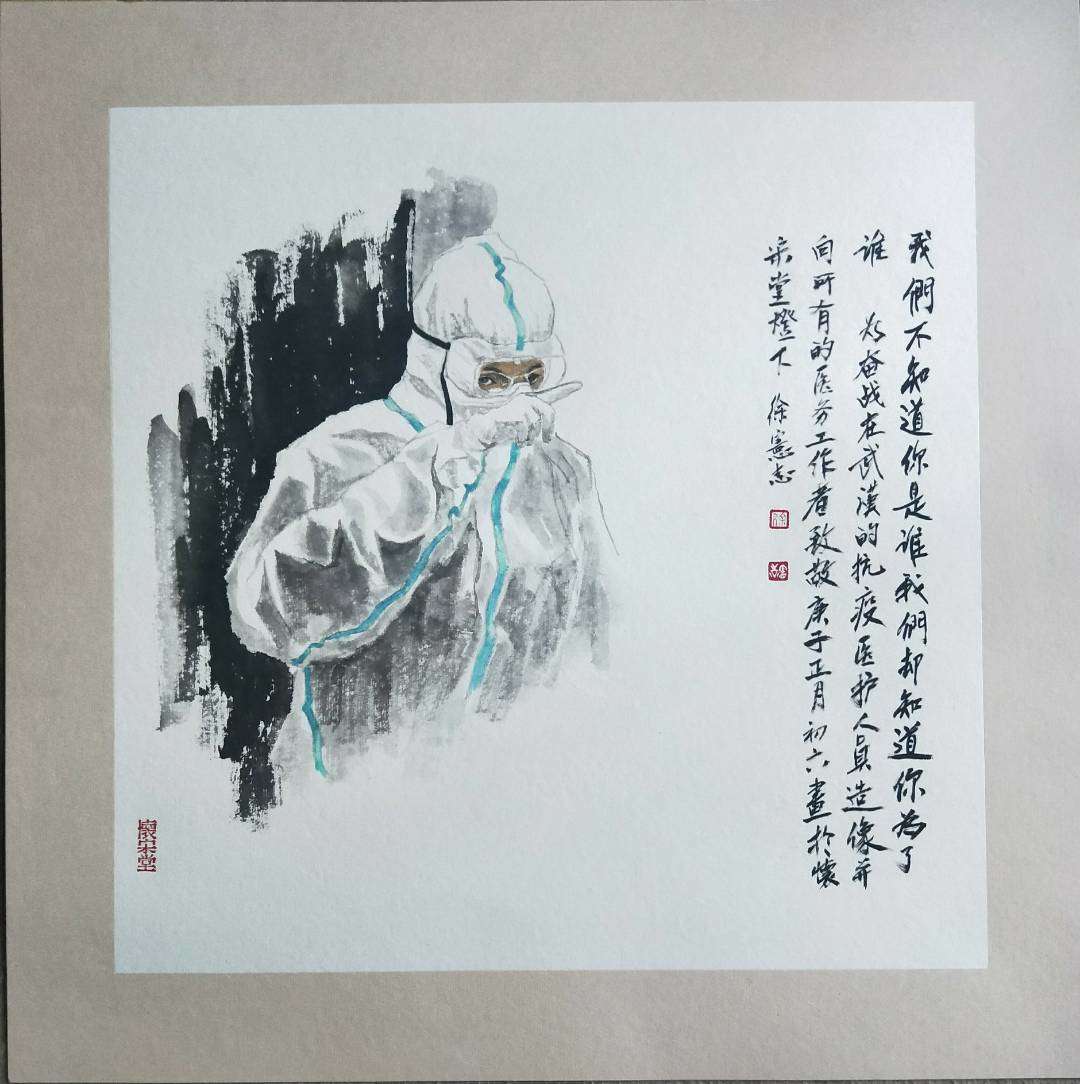 我們不知道你是谁我們却知道你为了
谁 为奋战在武漢的抗疫医护人員造像并
向所有的医务工作者致敬庚子正月初六畫於懷
宋堂燈下 徐憲志
懷宋堂